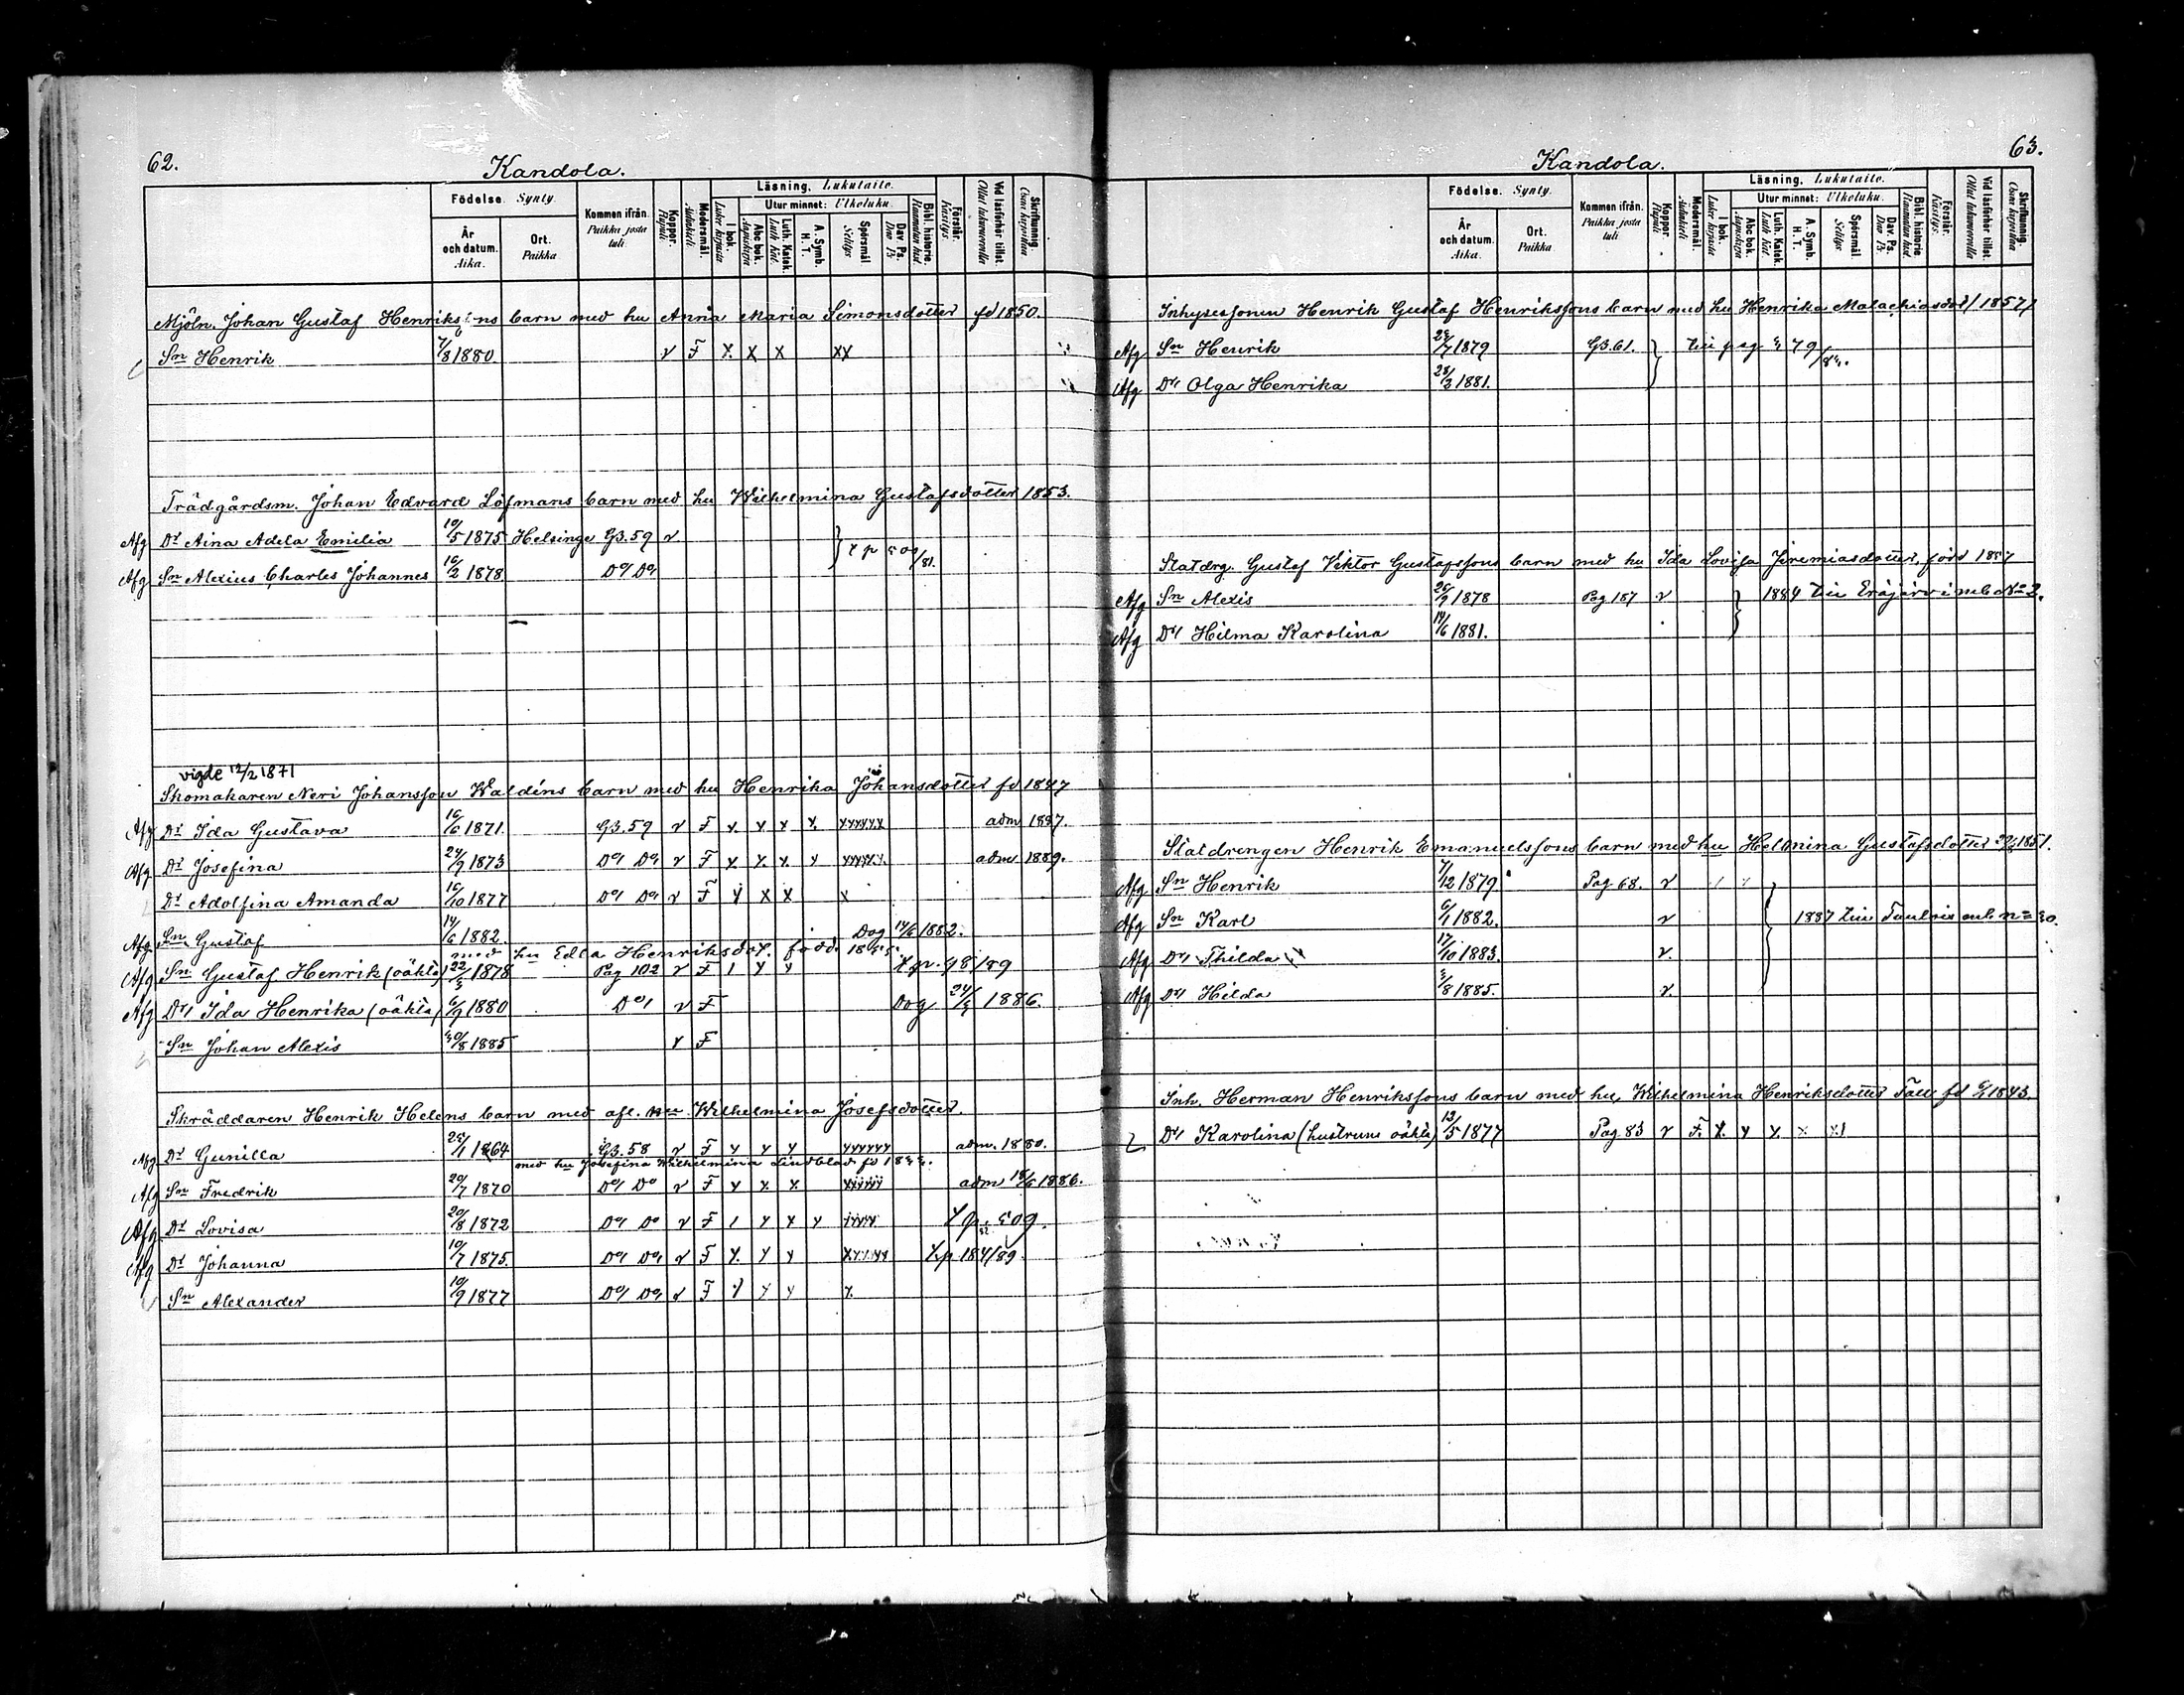 62.
Kandola.
Födelse. Synty.
Kommen ifrån. Paikka josta tuli.
Koppor. Rupuli
Modersmål. Äidinkieli
Läsning. Lukutaito.
I bok. Lukee kirjasta
Utur minnet: Ulkoluku.
Abc bok. Aapiskirja
Luth. Katek. Luth. Kat.
A. Symb. H. T.
Spörsmål Selitys
Dav. Ps. Dav. Ps.
Bibl. historie. Raamatun hist.
Förstår. Käsitys.
Vid läsförhör tillst. Ollut lukuvuorolla
Skriftkunnig. Osaa kirjoittaa
År och datum. Aika.
Ort. Paikka
Mjöln. Johan Gustaf Henriksons barn med hu Anna Maria Simonsdotter fd 1850.
Sn Henrik 7/8 1880 v F x x x xx
Trädgårdsm. Johan Edvard Löfmans barn med hu Wilhelmina Gustafsdotter 1853.
Afg Dr Aina Adela Emilia 10/5 1875 Helsinge G3.59 v
Afg Sn Alexius Charles Johannes 16/2 1878 Do Do
vigde 12/2 1871
Skomakaren Neri Johansson Waldéns barn med hu Henrika Johansdotter fd 1847
Afg Dr Ida Gustava 16/6 1871. G3.59 v F x x x x. xxxxxx adm 1887.
Afg Dr Josefina 24/9 1873 Do Do v F x x. x. x xxxxx. adm 1889.
Dr Adolfina Amanda 16/10 1877 Do Do v F x x x x
Afg Sn Gustaf 14/6 1882. Dog 14/6 1882.
med hu Edla Henriksdot. född 1855
Afg Sn Gustaf Henrik (oäkta) 22/3 1878 Pag 102 v F
Afg Dr Ida Henrika (oäkta) 6/9 1880 Do v F Dog 24/3 1886.
Sn Johan Alexis 30/8 1885 v F
Skräddaren Henrik Helens barn med afl. hu Wilhelmina Josefsdotter.
Afg Dr Gunilla 1864 G3.58 v F x x x xxxxxx adm. 1880.
med hu Josefina Wilhelmina Lindblad fd
Afg Sn Fredrik 20/7 1870 Do Do v F x x x xxxxxx adm 1886.
Afg Dr Lovisa 20/8 1872 Do Do v F x x x xxxx
Afg Dr Johanna 10/7 1875. Do Do v F x. x x xxxxx t.p 184/89.
Sn Alexander 10/9 1877 Do Do v F x x x x.
63.
Kandola.
Födelse. Synty.
Kommen ifrån. Paikka josta tuli.
Koppor. Rupuli
Modersmål. Äidinkieli
Läsning. Lukutaito.
I bok. Lukee kirjasta
Utur minnet: Ulkoluku.
Abc bok. Aapiskirja
Luth. Katek. Luth. Kat.
A. Symb. H. T.
Spörsmål Selitys
Dav. Ps. Dav. Ps.
Bibl. historie. Raamatun hist.
Förstår. Käsitys.
Vid läsförhör tillst. Ollut lukuvuorolla
Skriftkunnig. Osaa kirjoittaa
År och datum. Aika.
Ort. Paikka
Inhysessonen Henrik Gustaf Henrikssons barn med hu Henrika Malachiasdot/1857/
Afg Sn Henrik 1879 G3.61. Till pag
Afg Dr Olga Henrika 1881.
Statdrg. Gustaf Viktor Gustafssons barn med hu Ida Lovisa Jeremiasdotter, född 1857
Afg Sn Alexis 1878 Pag 187 v 1884 till Eräjärvi m.b. No 2.
Afg Dr Hilma Karolina 14/6 1881.
Statdrengen Henrik Emanuelssons barn med hu Helmina Gustafsdotter 1851.
Afg Sn Henrik 7/12 1879 Pag 68. v
Afg Sn Karl 6/1 1882. v 1887 till
Afg Dr Thilda 17/10 1883. v.
Afg Dr Hilda 3/8 1885. v.
Inh. Herman Henrikssons barn med hu, Wilhelmina Henriksdotter Tall fd 1843.
Dr Karolina (hustruns oäkta) 13/5 1877 Pag 83 v F. x. x x. x